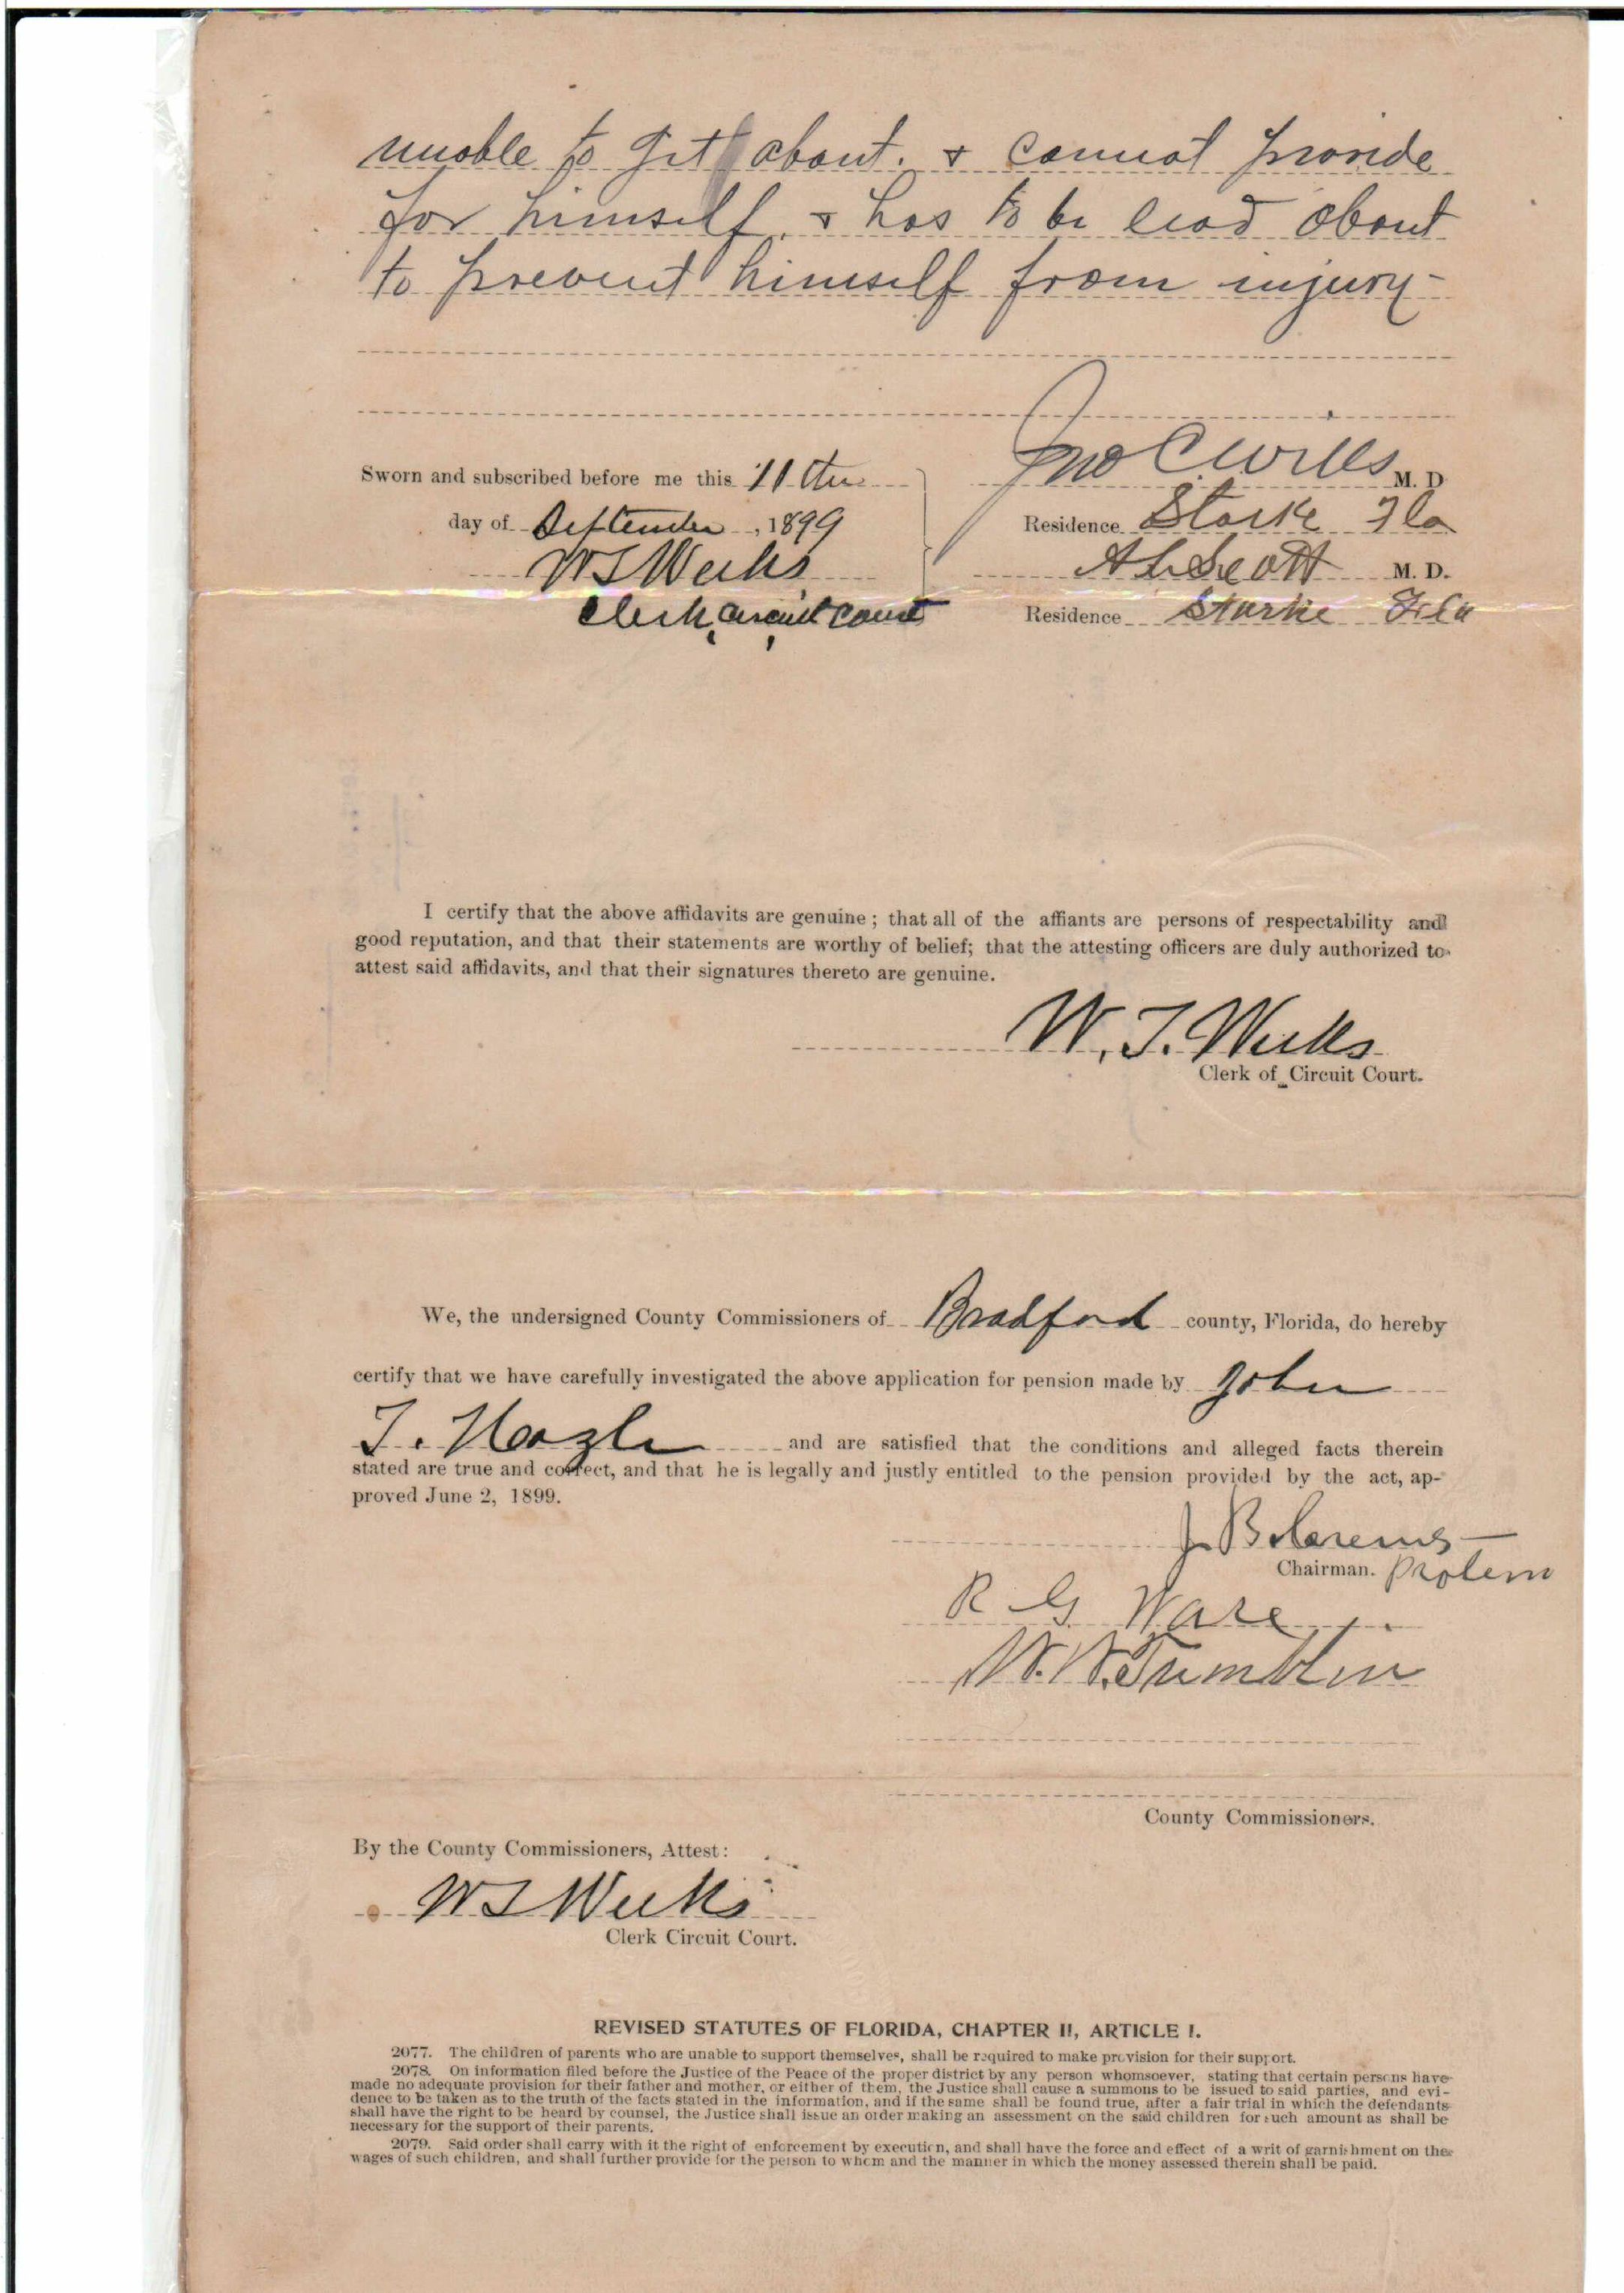 unable to get about. & cannot provide
for himself. & has to be lead about
to prevent himself from injury-
Sworn and subscribed before me this 11th
day of September, 1899
W T Weeks
Clerk, Circuit Court
Jno C Wills M. D
Residence Starke Fla
A L Scott M. D.
Residence Starke Fla
I certify that the above affidavits are genuine; that all of the affiants are persons of respectability and
good reputation, and that their statements are worthy of belief; that the attesting officers are duly authorized to
attest said affidavits, and that their signatures thereto are genuine.
W. T. Weeks
Clerk of Circuit Court.
We, the undersigned County Commissioners of Bradford county, Florida, do hereby
certify that we have carefully investigated the above application for pension made by John
T. Hazle and are satisfied that the conditions and alleged facts therein
stated are true and correct, and that he is legally and justly entitled to the pension provided by the act, ap-
proved June 2, 1899.
J B
Chairman. Protem
R G Ware
W. W. Tumblin
County Commissioners.
By the County Commissioners, Attest:
W T Weeks
Clerk Circuit Court.
REVISED STATUTES OF FLORIDA, CHAPTER II, ARTICLE I.
2077. The children of parents who are unable to support themselves, shall be required to make provision for their support.
2078. On information filed before the Justice of the Peace of the proper district by any person whomsoever, stating that certain persons have
made no adequate provision for their father and mother, or either of them, the Justice shall cause a summons to be issued to said parties, and evi-
dence to be taken as to the truth of the facts stated in the information, and if the same shall be found true, after a fair trial in which the defendants
shall have the right to be heard by counsel, the Justice shall issue an order making an assessment on the said children for such amount as shall be
necessary for the support of their parents.
2079. Said order shall carry with it the right of enforcement by execution, and shall have the force and effect of a writ of garnishment on the
wages of such children, and shall further provide for the person to whom and the manner in which the money assessed therein shall be paid.